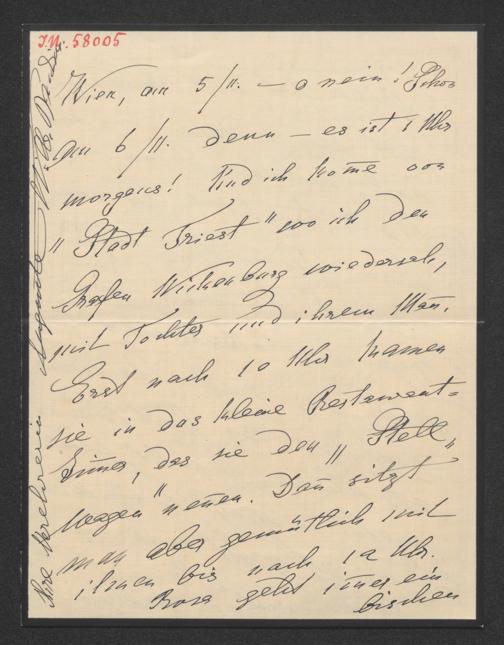 I.N. 58005
Wien, am 5/11. — o nein! Schon
am 6/11. denn — es ist 1 Uhr
morgens! Und ich kome von
"Stadt Triest" wo ich den
Grafen Wickenburg wiedersah,
mit Tochter und ihrem Man.
Erst nach 10 Uhr kamen
sie in das kleine Restaurent=
zimer, das sie den "Stell
wagen" nenen. Dan sitzt
man aber gemütlich mit
ihnen bis nach 12 Uhr.
Rosa geht imer ein
bischen
Ihre Verehrerin Auguste